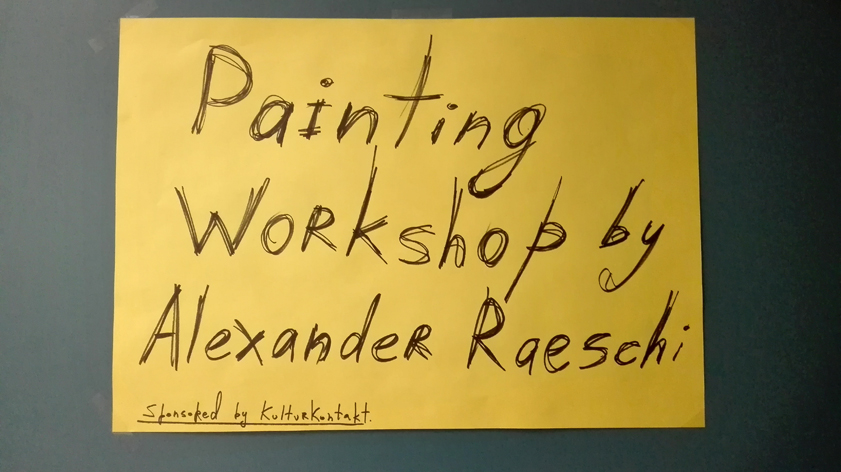 Painting
Workshop by
Alexander Raeschi
Sponsored by KulturKontakt.